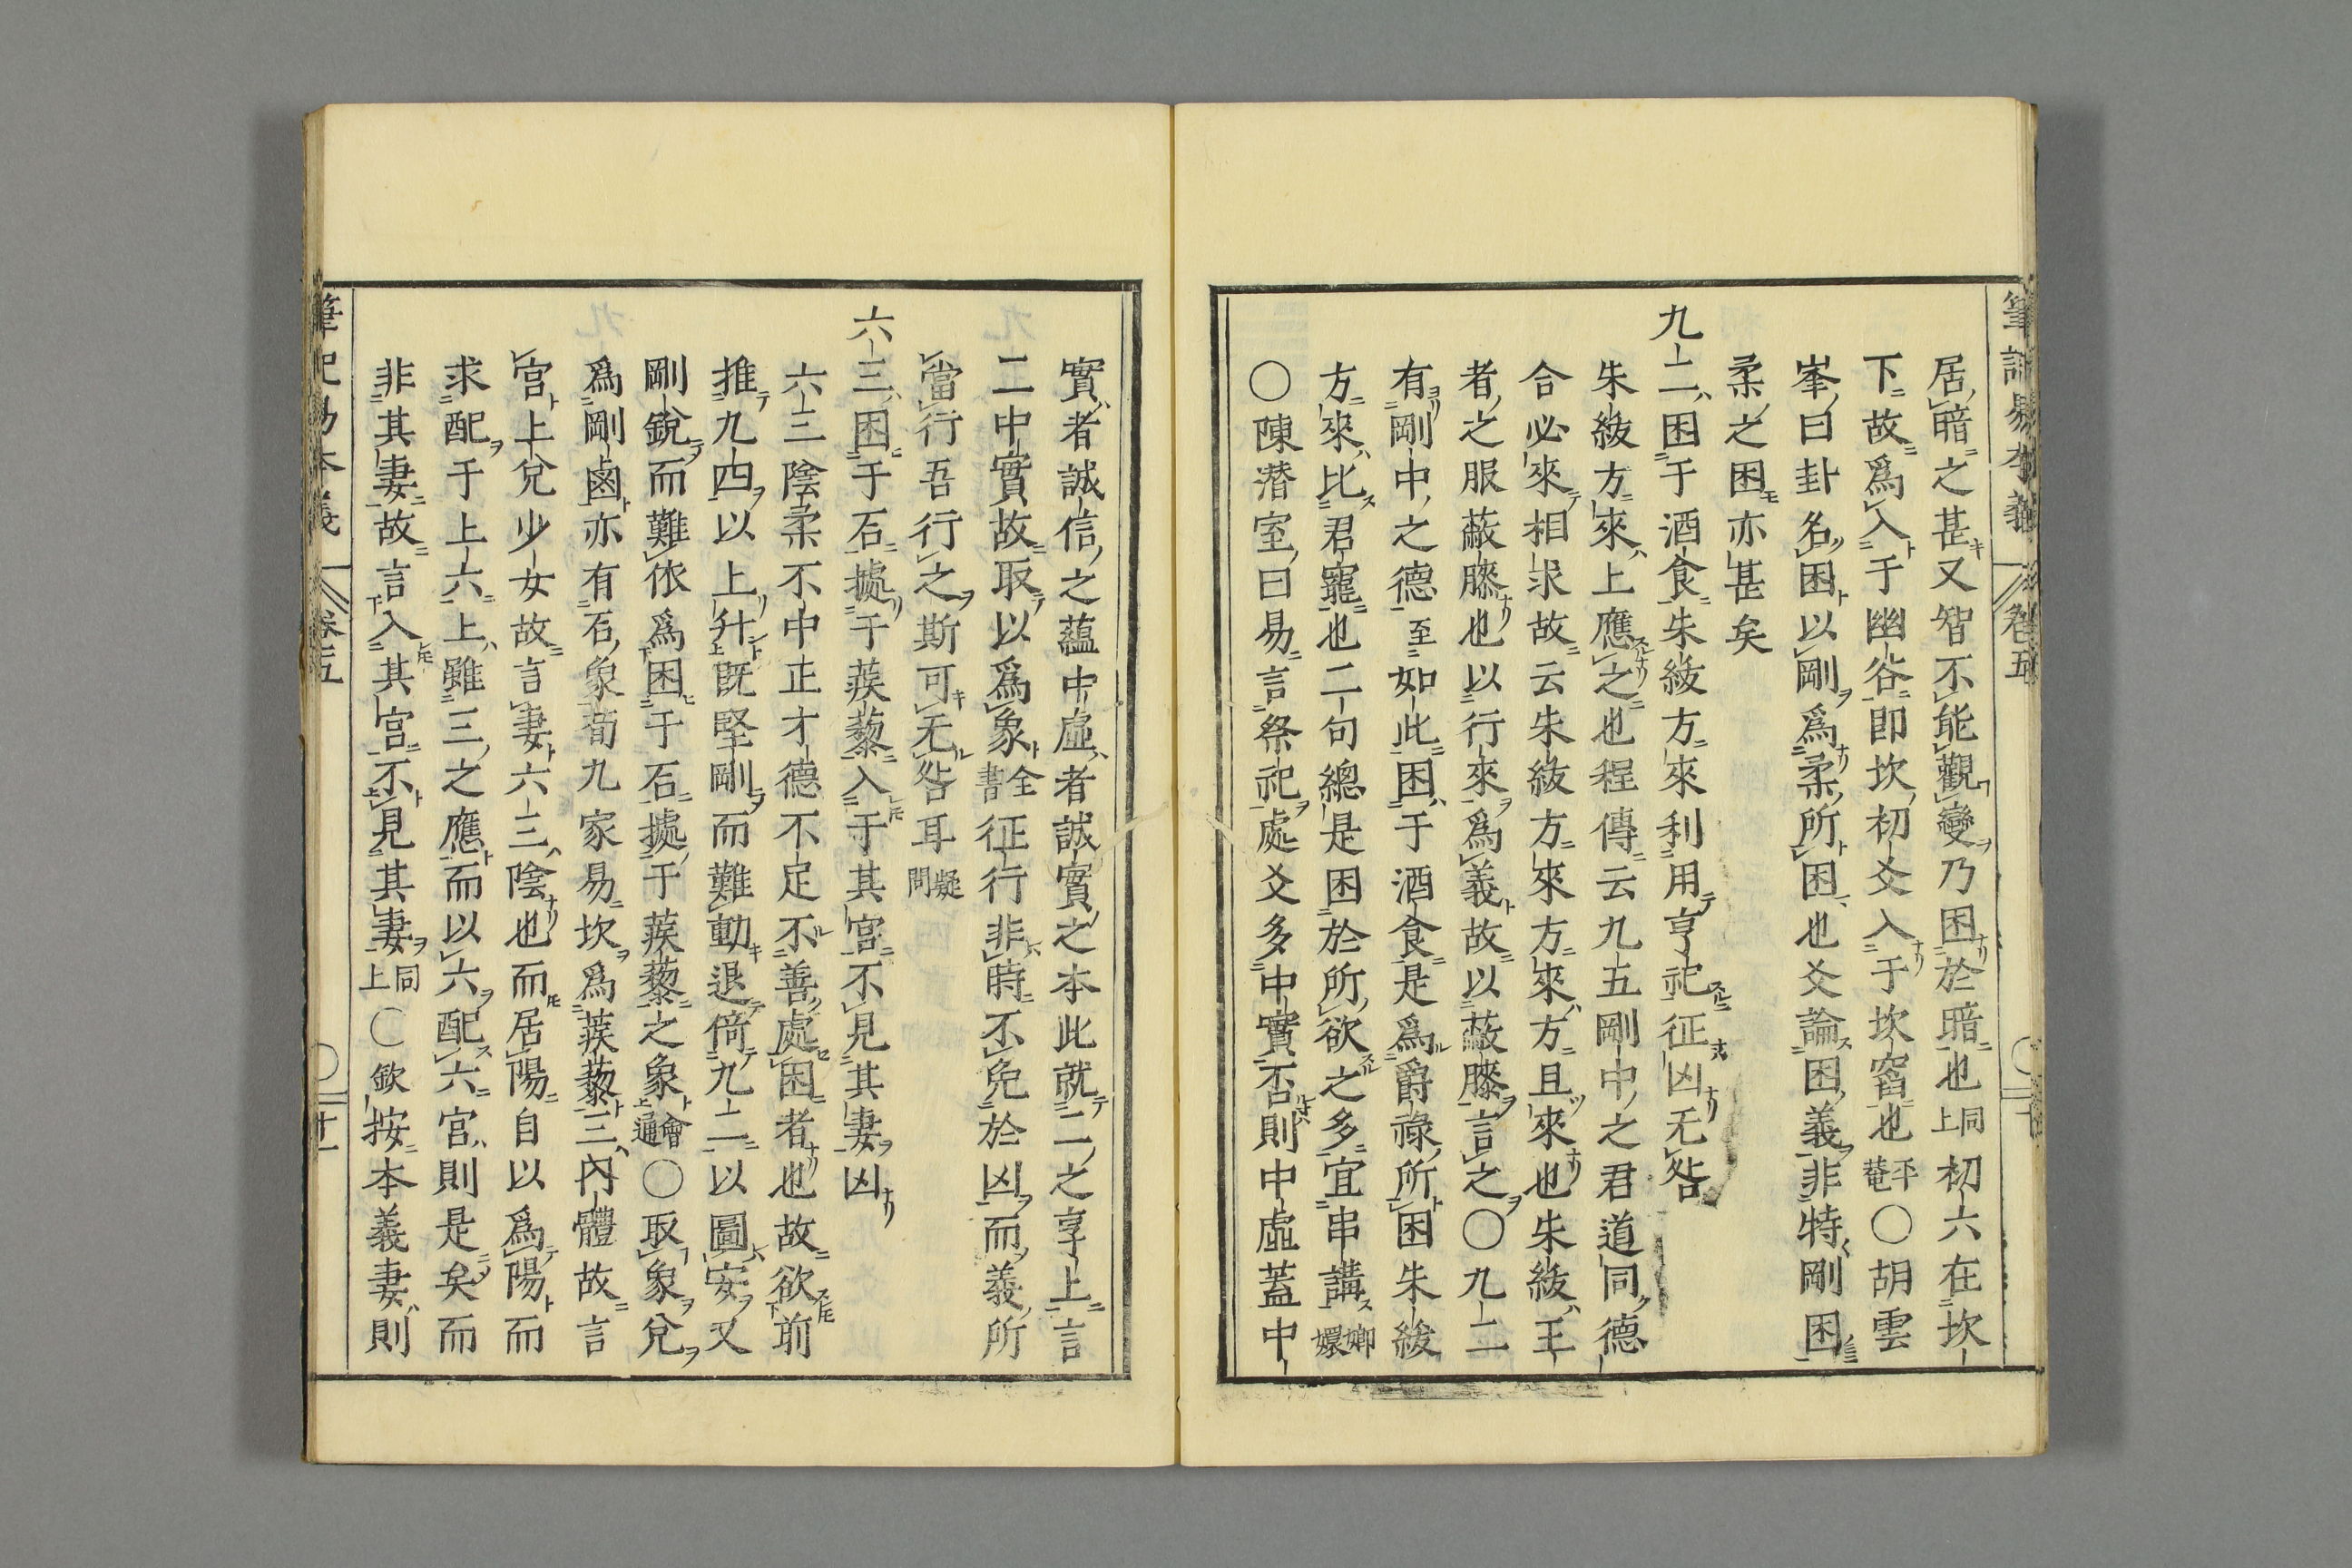 居暗之甚又智不能觀變乃困於暗也同上初六在坎
下故爲入于幽谷即坎初爻入于坎窞也平菴〇胡雲
峯曰卦名困以剛爲柔所困也爻論困義非特剛困
柔之困亦甚矣
九二困于酒食朱紱方來利用亨祀征凶无咎
朱紱方來上應之也程傳云九五剛中之君道同德
合必來相求故云朱紱方來方來方且來也朱紱王
者之服蔽膝也以行來爲義故以蔽膝言之〇九二
有剛中之德至如此困于酒食是爲爵祿所困朱紱
方來比君寵也二句總是困於所欲之多宜串講嫏嬛
〇陳潛室曰易言祭祀處爻多中實否則中虛蓋中
實者誠信之蘊中虛者誠實之本此就二之享上言
二中實故取以爲象全書征行非時不免於凶而義所
當行吾行之斯可无咎耳疑問
六三困于石據于蒺藜入于其宮不見其妻凶
六三陰柔不中正才德不足不善處困者也故欲前
推九四以上升既堅剛而難動退倚九二以圖安又
剛銳而難依爲困于石據于蒺藜之象會通〇取象兌
爲剛鹵亦有石象荀九家易坎爲蒺藜三內體故言
宮上兌少女故言妻六三陰也而居陽自以爲陽而
求配于上六上雖三之應而以六配六官則是矣而
非其妻故言入其宮不見其妻同上〇欽按本義妻則